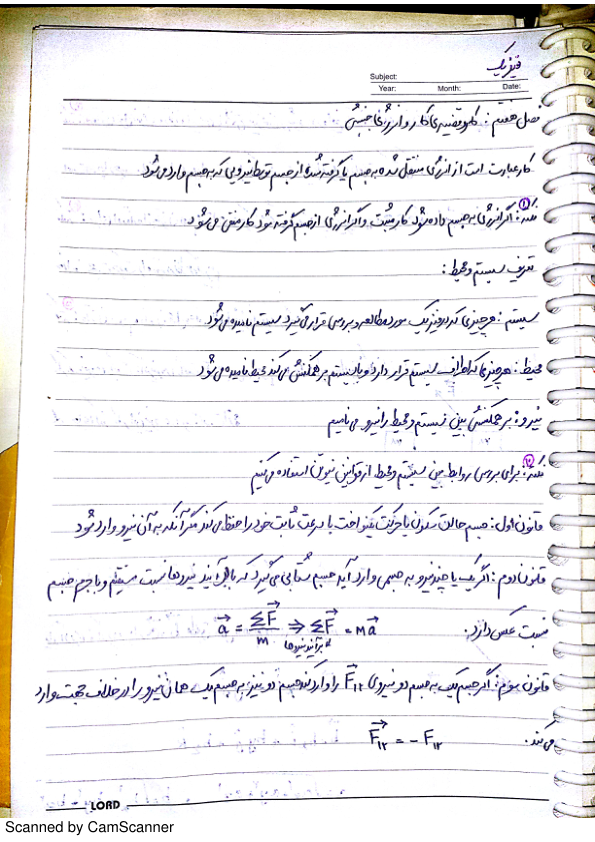 فیزیک
Subject:
Year: Month: Date:
فصل هفتم: کار و انرژی جنبشی
کار عبارت است از انرژی منتقل شده به جسم یا گرفته شده از جسم توسط نیرویی که به جسم وارد می‌شود
نکته ۱: اگر انرژی به جسم داده شود کار مثبت و اگر انرژی از جسم گرفته شود کار منفی می‌شود
تعریف سیستم و محیط:
سیستم: هرچیزی که در فیزیک مورد مطالعه و بررسی قرار می‌گیرد سیستم نامیده می‌شود
محیط: هرچیزی که اطراف سیستم قرار دارد و با سیستم برهمکنش می‌کند محیط نامیده می‌شود
نیرو: برهمکنش بین سیستم و محیط را نیرو می‌نامیم
نکته ۲: برای بررسی روابط بین سیستم و محیط از قوانین نیوتن استفاده می‌کنیم
قانون اول: جسم حالت سکون یا حرکت یکنواخت با سرعت ثابت خود را حفظ می‌کند مگر آنکه به آن نیرو وارد شود
قانون دوم: اگر یک یا چند نیرو به جسمی وارد آید جسم شتابی می‌گیرد که با برآیند نیروها نسبت مستقیم و با جرم جسم
نسبت عکس دارد. a = ΣF/m ⇒ ΣF = ma
برآیند نیروها
قانون سوم: اگر جسم یک به جسم دو نیروی F₁₂ را وارد کند جسم دو نیز به جسم یک همان نیرو را در خلاف جهت وارد
می‌کند. F₁₂ = -F₁₂
LORD
Scanned by CamScanner